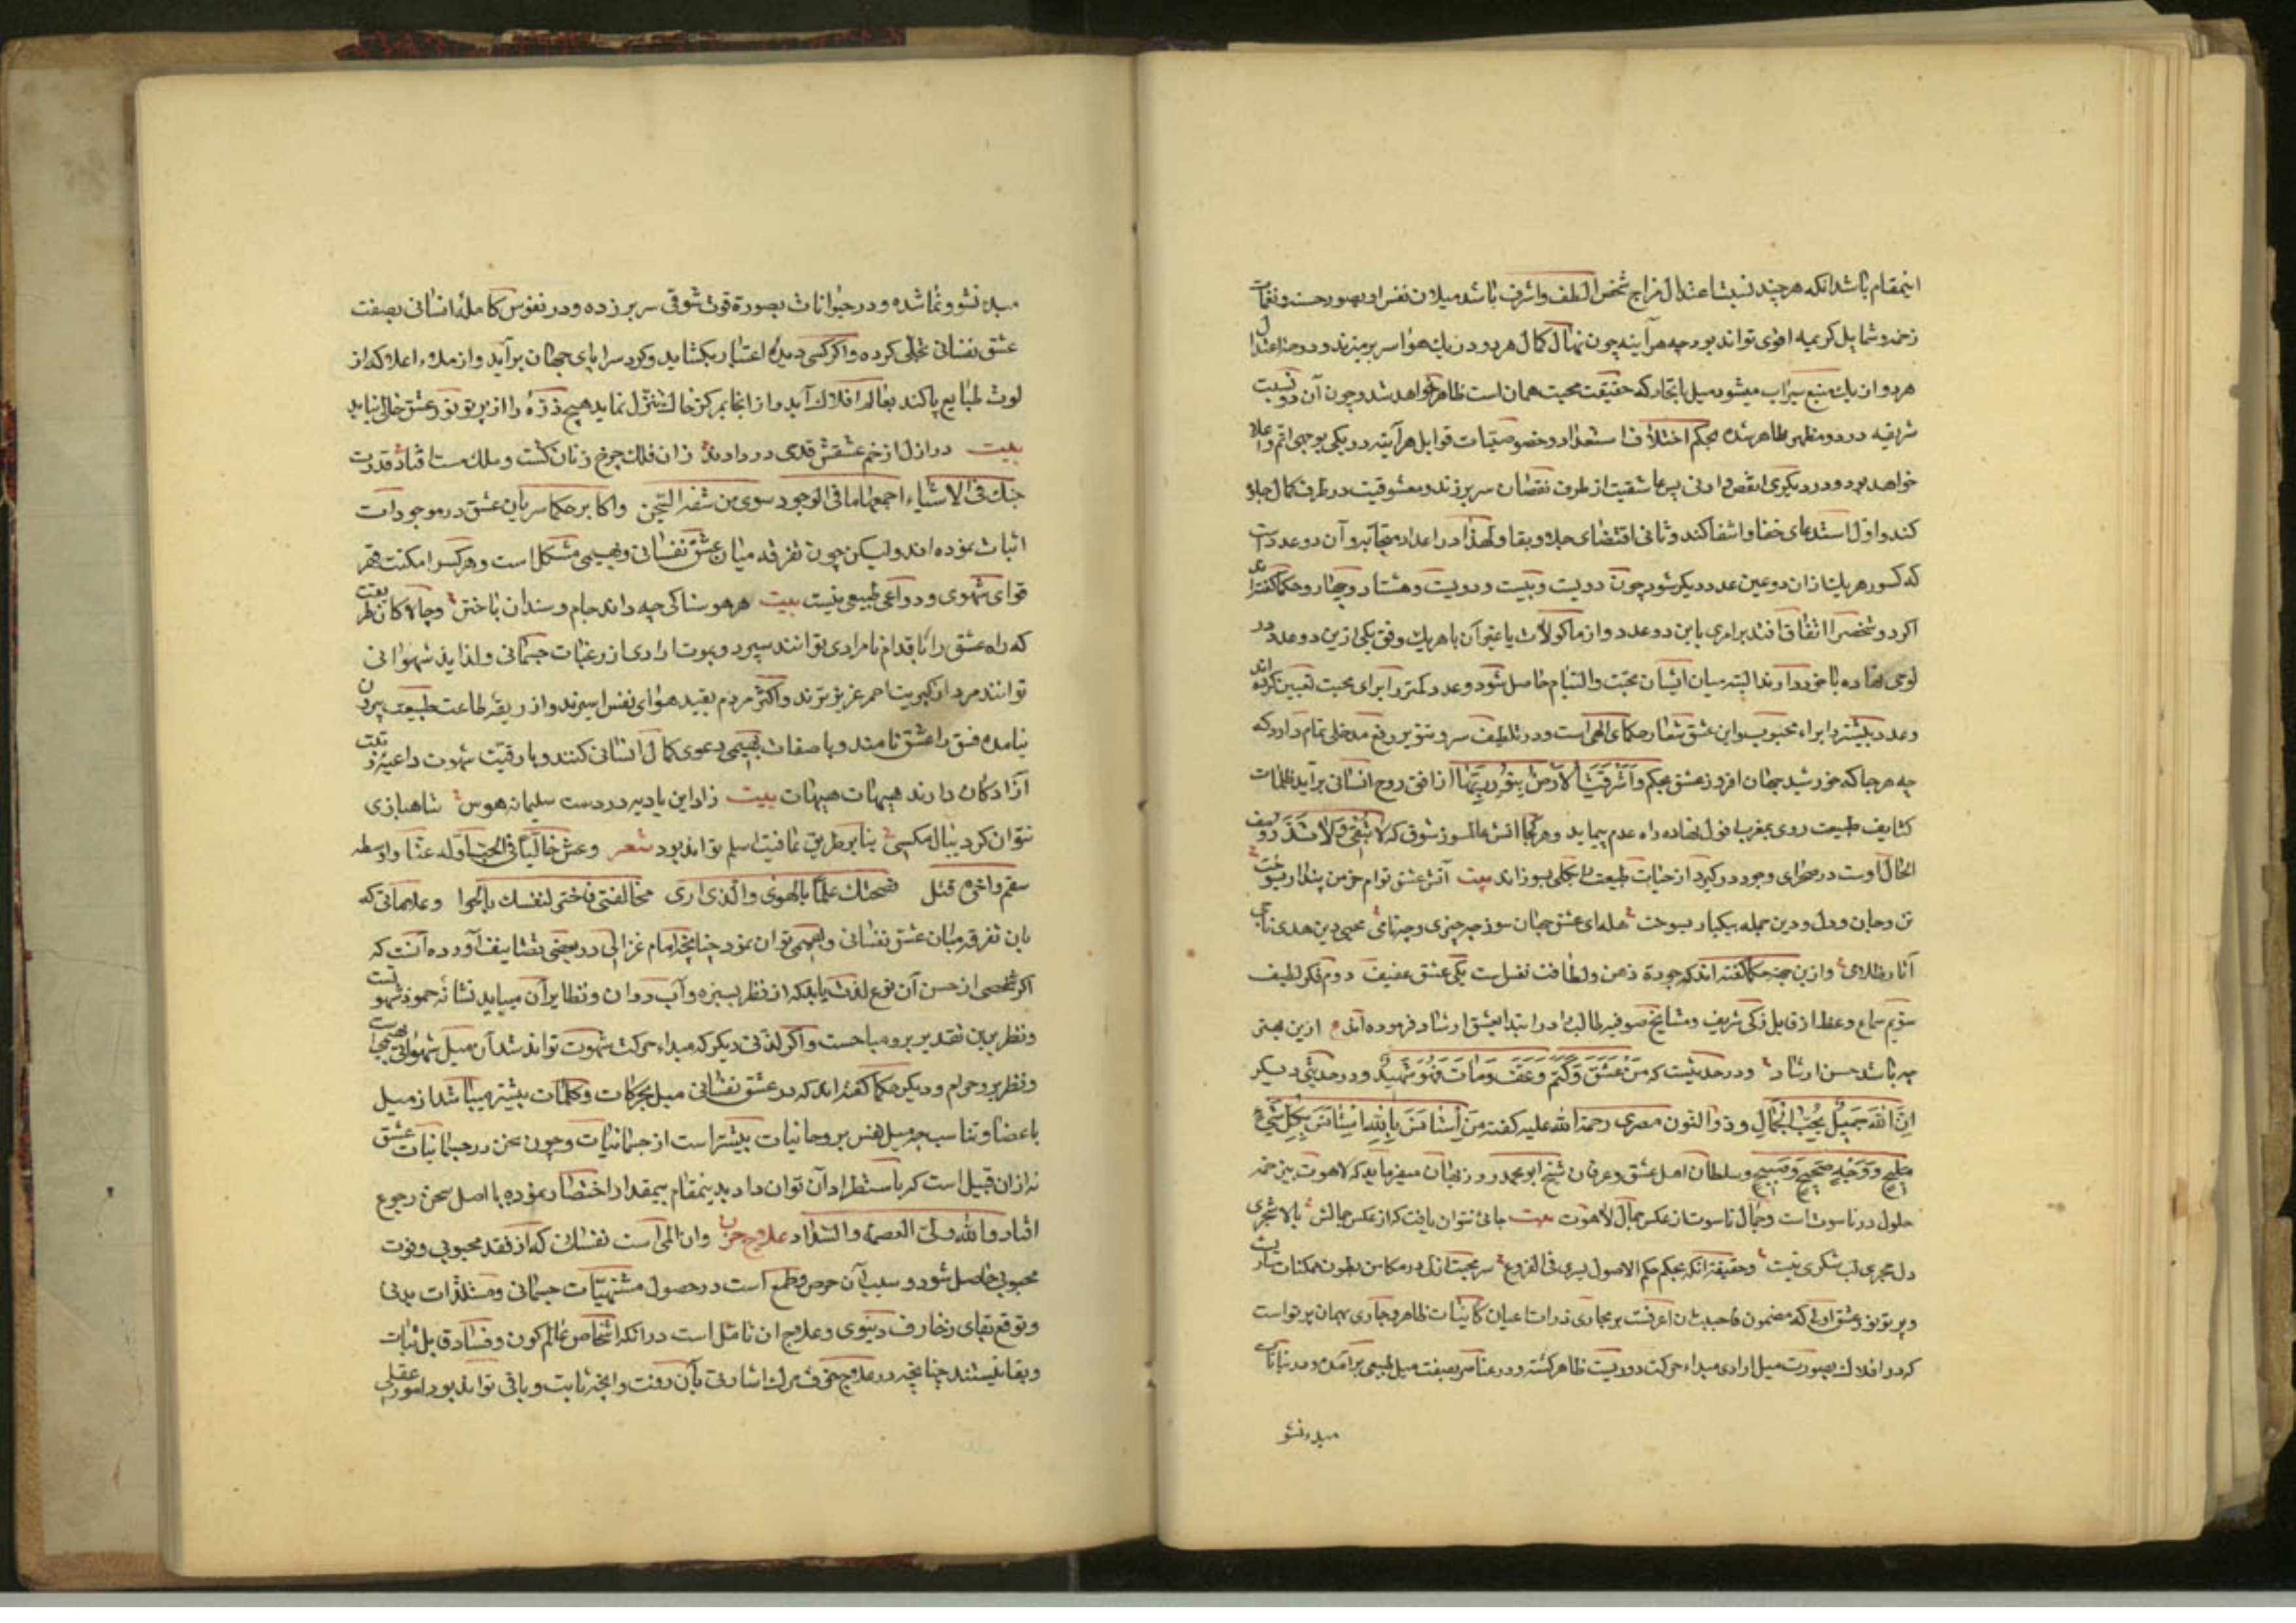 اینمقام باشد آنکه هر چند نسبت اعتدال مزاج شخص الطف و اشرف باشد میلان نفس او بصور حسنه و نغمات
رخیمه و شمایل کریمه اقوی تواند بود چه هر آینه چون نهال کمال هر دو در یک هوا سر بر میزند و دوحه اعتدال
هر دو از یک منبع سیراب میشود میل باتحاد که حقیقت محبت همان است ظاهر خواهد شد و چون آن دو نسبت
شریفه در دو مظهر ظاهر شده بحکم اختلاف استعداد و خصوصیات قوابل هر آینه در یکی بوجهی اتم و اعلا
خواهد بود و در دیگری انقص و ادنی پس عاشقیت از طرف نقصان سر بر زند و معشوقیت در طرف کمال جلوه
کند و اول استدعای خفا و اشفا کند و ثانی اقتضای جلا و بقا و لهذا در اعداد متحابه و آن دو عدد است
که کسور هر یک ازان دو عین عدد دیگر شود چون دویست و بیست و دویست و هشتاد و چهار و حکما گفته‌اند
اگر دو شخص را اتفاق افتد برامری باین دو عدد و از ماکولات یا غیر آن با هر یک وفق یکی ازین دو عدد در
لوحی نهاده با خود دارند البته میان ایشان محبت و التیام حاصل شود و عدد کمتر را برای محبت تعیین کرده اند
و عدد بیشتر را براء محبوب و این عشق شعار حکمای الهی است و در تلطیف سر و تنویر روح مدخلی تمام دارد که
چه هر جا که خورشید جهان افروز عشق بحکم وَاَشْرَقَتِ الْاَرْضُ بِنُورِ رَبِّهَا از افق روح انسانی بر آید ظلمات
کثایف طبیعت روی بمغرب افول نهاده راه عدم پیماید و هر کجا آتش عالمسوز شوق که لَا تُبْقِی وَلَا تَذَرُ وصف
الحال اوست در صحرای وجود در گیرد از خبثات طبیعت را بکلی بسوزاند بیت آتش عشق تو ام خرمن پندار بسوخت
تن و جان و دل و دین جمله بیکبار بسوخت هله ای عشق جهان سوز چه چیزی و چه نامی محیی دین هدی ماحی
آثار ظلامی و ازین جهه حکما گفته اند که جودة ذهن و لطافت نفس است یکی عشق عفیف دوم فکر لطیف
سوم سماع وعظ از قایل زکی شریف و مشایخ صوفیه طالب را در ابتدا بعشق ارشاد فرموده اند ازین بهتر
چه باشد حسن ارشاد و در حدیثست که مَنْ عَشِقَ وَکَتَمَ وَعَفَّ وَمَاتَ مَاتَ شَهِیدًا و در حدیثی دیگر
اِنَّ اللهَ جَمِیلٌ یُحِبُّ الْجَمَالَ و ذو النون مصری رحمة الله علیه گفته مَنِ اسْتَأْنَسَ بِاللهِ اِسْتَأْنَسَ بِکُلِّ شَیْءٍ
مَلِیحٍ وَوَجْهٍ صَبِیحٍ و سلطان اهل عشق و عرفان شیخ ابو محمد روزبهان میفرماید که لاهوت بی زخم
حلول در ناسوت است و جمال ناسوت از عکس جمال لاهوت بیت جائی نتوان یافت که از عکس جمالش بالا شجری
دل حجری لب شکری نیست و حقیقة انکه بحکم حکم الاصول یسری فی الفروع سر محبت ازلی در مکامن بطون ممکنات ساریست
و پرتو نور عشق اولی که مضمون فاحببت ان اعرفست بر مجاری ذرات اعیان کاینات ظاهر و جاری همان پرتو است
که در افلاک بصورت میل ارادی مبداء حرکت دوریست ظاهر گشته و در عناصر بصفت میل طبیعی بر آمده و در نباتات
مبدء نشو
مبدء نشو و نما شده و در حیوانات بصورة قوت شوقی سر بر زده و در نفوس کامله انسانی بصفت
عشق نفسانی تجلی کرده و اگر کسی دیده اعتبار بکشاید و گرد سراپای جهان برآید و از ملاء اعلا که از
لوث طبایع پاکند بعالم افلاک آید و از انجا بمرکز خاک تنزل نماید هیچ ذره را از پرتو نور عشق خالی نیابد
بیت در ازل از خم عشقش قدحی در دادند زان فلک چرخ زنان گشت و ملک مست افتاد
حبک فی الاشیاء اجمعها ما فی الوجود سوی من شفه الشجن و اکابر حکما سریان عشق در موجودات
اثبات نموده اند ولیکن چون تفرقه میان عشق نفسانی و بهیمی مشکل است و هر کس را مکنت قهر
قوای شهوی و دواعی طبیعی نیست بیت هر هوسناکی چه داند جام و سندان باختن و چالاکان طریقت
که راه عشق را باقدام نامرادی توانند سپرد و بموت ارادی از رغبات جسمانی و لذایذ شهوانی
توانند مرد از کبریت احمر عزیزترند و اکثر مردم بقید هوای نفس اسیرند و از ربقه طاعت طبیعت بیرون
نیامده فسق را عشق نامند و با صفات بهیمی دعوی کمال انسانی کنند و با رقیت شهوت داعیه رتبت
آزادگان دارند هیهات هیهات بیت زاد این بادیه در دست سلیمان هوس شاهبازی
نتوان کرد ببال مگسی بنابر طریق عافیت اسلم تواند بود شعر وعش خالیا فالحب اوله عنا واوسطه
سقم واخره قتل نصحتک علما بالهوی والذی اری مخالفتی فاختر لنفسک ما یحلوا و علاماتی که
بان تفرقه میان عشق نفسانی و بهیمی توان نمود چنانچه امام غزالی در بعضی تصانیف آورده آنست که
اگر شخصی از حسن آن نوع لذت یابد که از نظر بسبزه و آب روان و نظایر آن مییابد نشانه خمود شهوتست
و نظر برین تقدیر برو مباحست و اگر لذتی دیگر که مبداء حرکت شهوت تواند شد آن میل شهوانی بهیمیست
و نظر برو حرام و دیگر حکما گفته اند که در عشق نفسانی میل بحرکات و کلمات بیشتر میباشد از میل
باعضا و تناسب چه میل نفس بروحانیات بیشتر است از جسمانیات و چون سخن در جسمانیات عشق
نه ازان قبیل است که باستطراد آن توان داد بدینمقام بیمقدار اختصار نموده با اصل سخن رجوع
افتاد والله ولی العصمة والسداد علاج حزن و ان المی است نفسانی که از فقد محبوبی و فوت
محبوبی حاصل شود و سبب آن حرص و طمع است در حصول مشتهیات جسمانی و مستلذات بدنی
و توقع بقای زخارف دنیوی و علاج ان تامل است در انکه اشخاص عالم کون و فساد قابل ثبات
و بقا نیستند چنانچه در علاج خوف مرگ اشارتی بآن رفت و انچه ثابت و باقی تواند بود امور عقلی